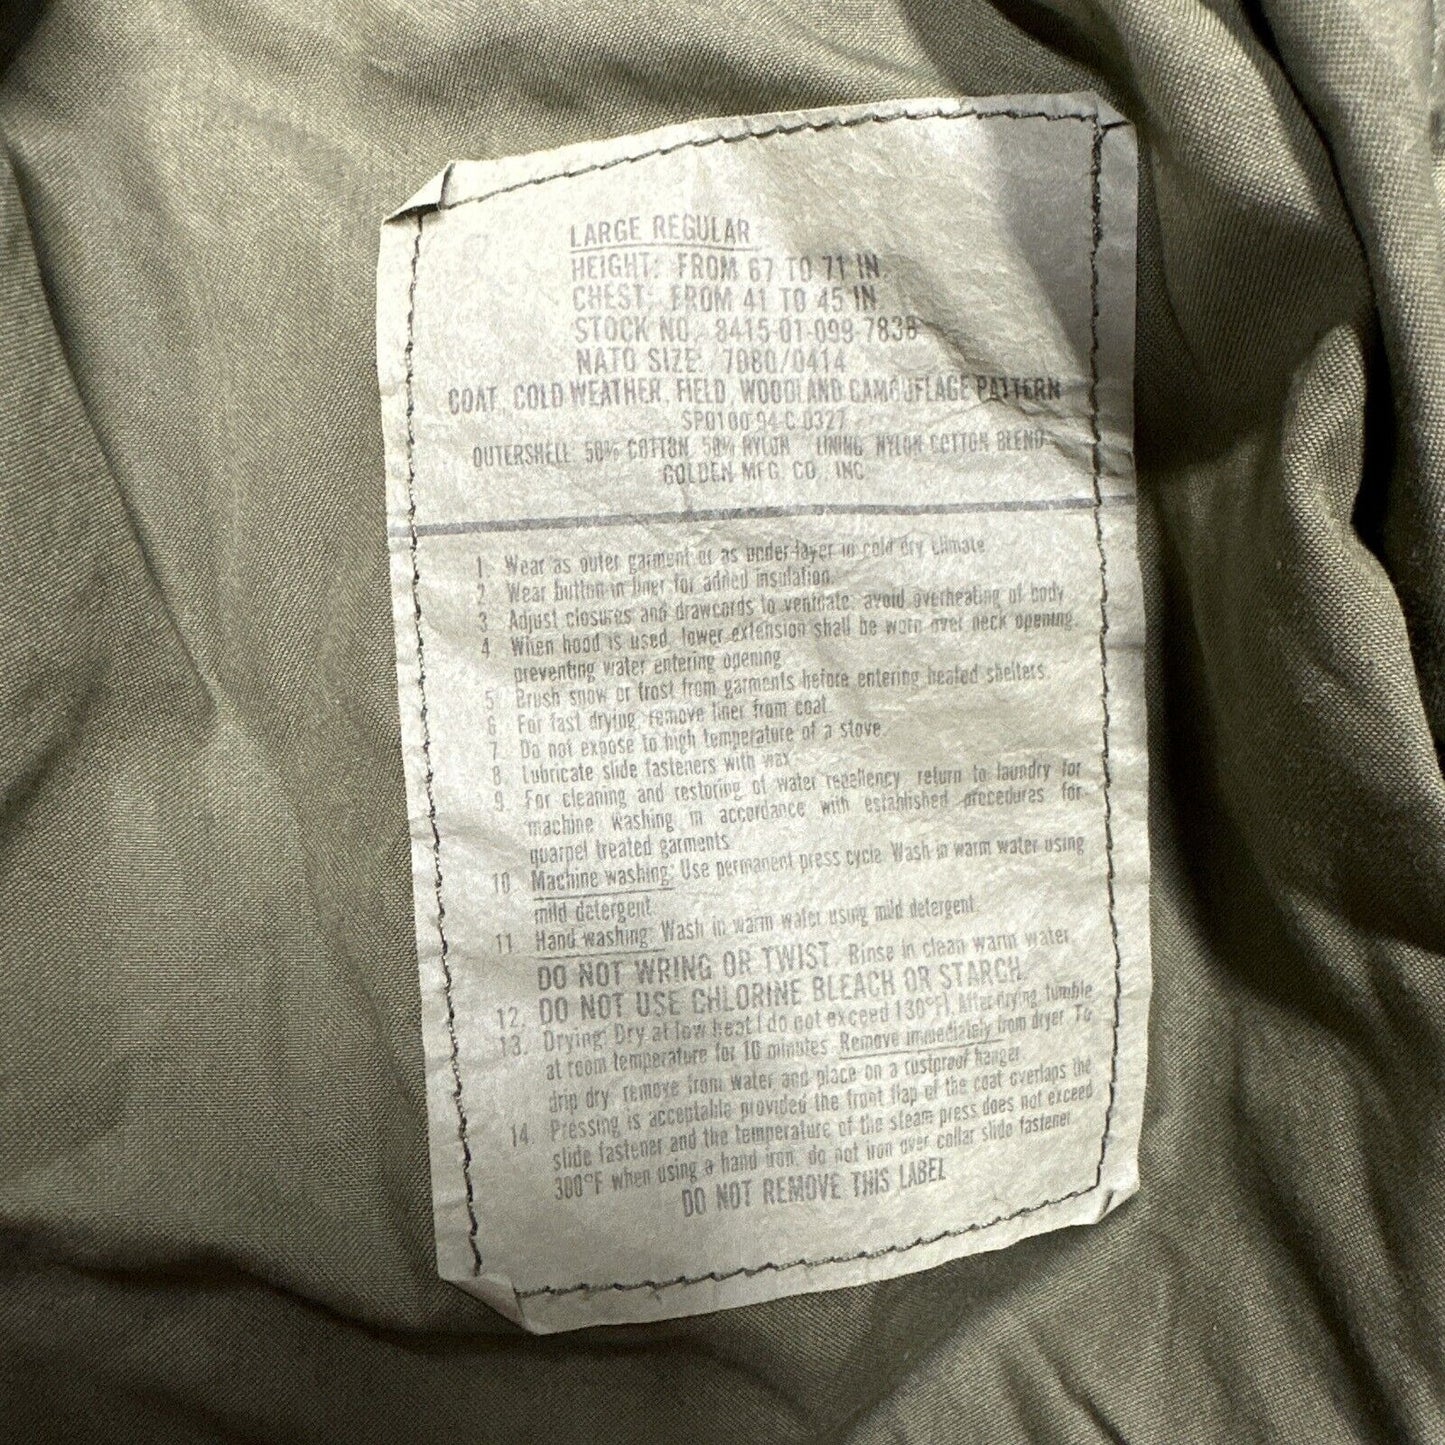 LARGE REGULAR
HEIGHT: FROM 67 TO 71 IN.
CHEST: FROM 41 TO 45 IN.
STOCK NO. 8415-01-099-7838
NATO SIZE: 7080/0414
COAT, COLD WEATHER, FIELD, WOODLAND CAMOUFLAGE PATTERN
SPO100-94-C-0327
OUTERSHELL: 50% COTTON, 50% NYLON LINING: NYLON COTTON BLEND
GOLDEN MFG. CO., INC.
1. Wear as outer garment or as under-layer in cold dry climate
2. Wear button-in liner for added insulation.
3. Adjust closures and drawcords to ventilate, avoid overheating of body
4. When hood is used, lower extension shall be worn over neck opening,
preventing water entering opening
5. Brush snow or frost from garments before entering heated shelters.
6. For fast drying, remove liner from coat.
7. Do not expose to high temperature of a stove.
8. Lubricate slide fasteners with wax
9. For cleaning and restoring of water repellency, return to laundry for
machine washing in accordance with established procedures for
quarpel treated garments
10. Machine washing: Use permanent press cycle. Wash in warm water using
mild detergent.
11. Hand washing: Wash in warm water using mild detergent.
DO NOT WRING OR TWIST. Rinse in clean warm water.
12. DO NOT USE CHLORINE BLEACH OR STARCH.
13. Drying: Dry at low heat (do not exceed 130°F). After drying, tumble
at room temperature for 10 minutes. Remove immediately from dryer. To
drip dry, remove from water and place on a rustproof hanger.
14. Pressing is acceptable provided the front flap of the coat overlaps the
slide fastener and the temperature of the steam press does not exceed
300°F when using a hand iron, do not iron over collar slide fastener.
DO NOT REMOVE THIS LABEL